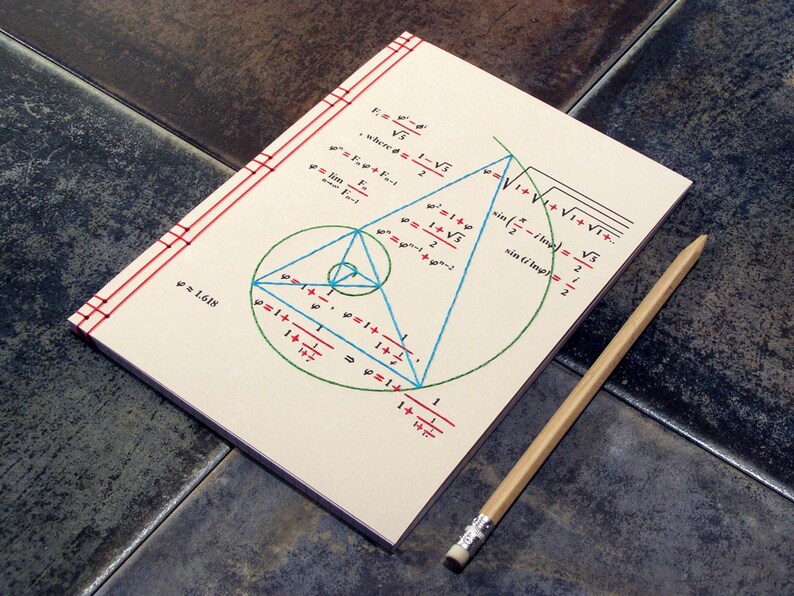 Fᵢ = (φⁱ − ϕⁱ)/√5
, where ϕ = (1 − √5)/2
φⁿ = Fₙφ + Fₙ₋₁
φ = lim n→∞ Fₙ/Fₙ₋₁
φ² = 1 + φ
φ = (1 + √5)/2
φⁿ = φⁿ⁻¹ + φⁿ⁻²
φ = √(1 + √(1 + √(1 + √(1 + ..
sin(π/2 − i lnφ) = √5/2
sin (i lnφ) = i/2
φ ≈ 1.618
φ = 1 + 1/φ , φ = 1 + 1/(1 + 1/φ) ,
φ = 1 + 1/(1 + 1/(1 + 1/φ)) ⇒ φ = 1 + 1/(1 + 1/(1 + 1/